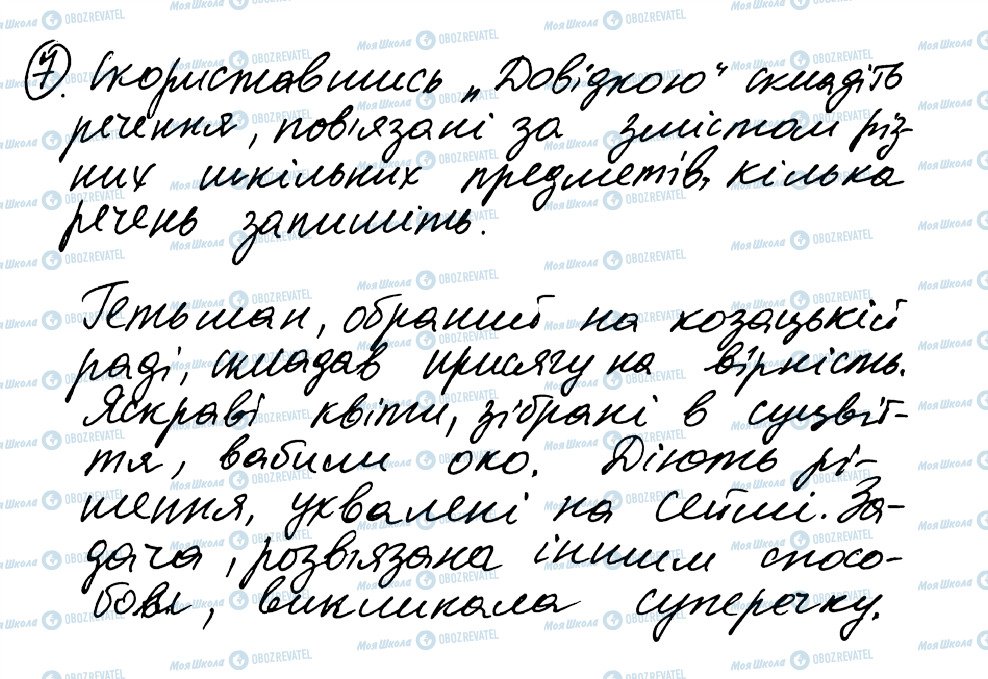 7. Скориставшись „Довідкою“ складіть
речення, пов'язані за змістом різ-
них шкільних предметів, кілька
речень запишіть.
Гетьман, обраний на козацькій
раді, складав присягу на вірність.
Яскраві квіти, зібрані в суцвіт-
тя, вабили око. Діють рі-
шення, ухвалені на сеймі. За-
дача, розв'язана іншим спосо-
бом, викликала суперечку.